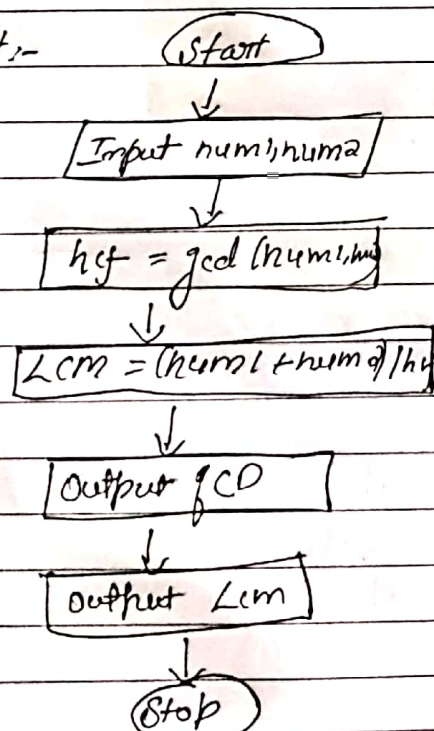 Start
Input num1,num2
hcf = gcd (num1,
Lcm = (num1 + num2)/h
Output GCD
Output Lcm
Stop